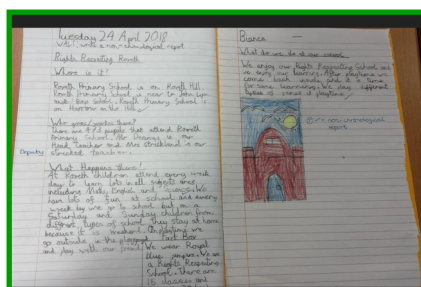 Tuesday 24 April 2018
WALT: write a non-chronological report
Rights Respecting Roxeth
Where is it?
Roxeth Primary School is on Roxeth Hill.
Roxeth Primary School is near to John Lyon
School. Roxeth Primary School is
in Harrow on the Hill.
Who goes/works there?
There are 471 pupils that attend Roxeth
Primary School. Mr is our
Head Teacher and Mrs Strickland is our
Deputy
teacher.
What Happens there?
At Roxeth children attend every week
day to learn lots in all subjects areas
including Maths, English and Science. We
have lots of fun at school and every
week we go to school but on a
Saturday and Sunday children from
different types of school they stay at home
because it is weekend. On playtime we
go outside in the playground
and play with our friends.
Fact Box
We wear Royal
blue jumpers. We are
a Rights Respecting
School. There are
15 classes and
Bianca
What do we do at our school
We enjoy our Rights Respecting School and
we enjoy our learning. After playtime we
come back inside and it is time
for some learning. We play different
types of games at playtime.
non-chronological
report